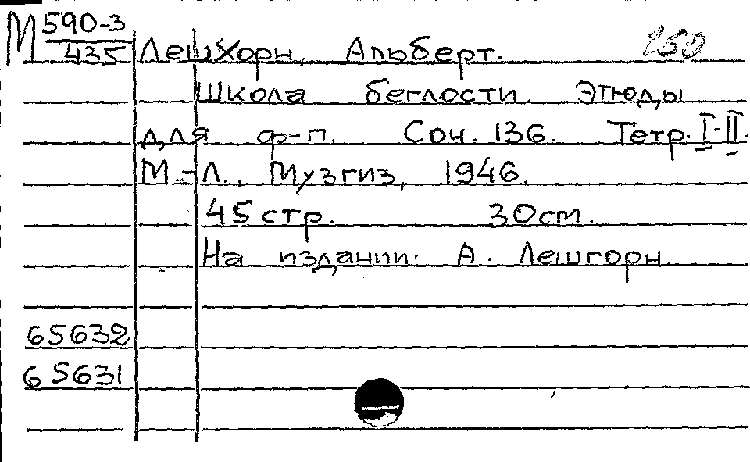 М 590-3 Лешхорн, Альберт. 250
435
Школа беглости. Этюды
для ф-п. Соч. 136. Тетр. I-II.
М.-Л., Музгиз, 1946.
45 стр. 30 см.
На издании: А. Лешгорн
65632
65631